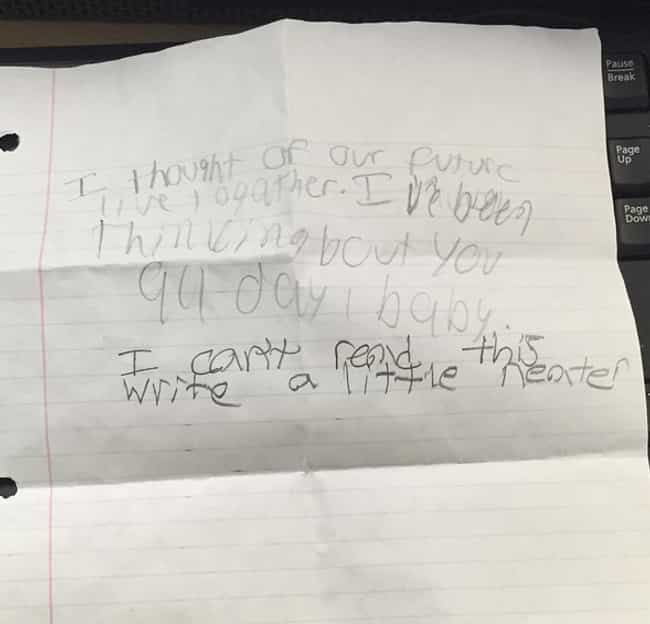 I thought of our future
live togather. I I've been
thinking bout you
all day, baby.
I can't read this
write a little neater
Pause
Break
Page
Up
Page
Down